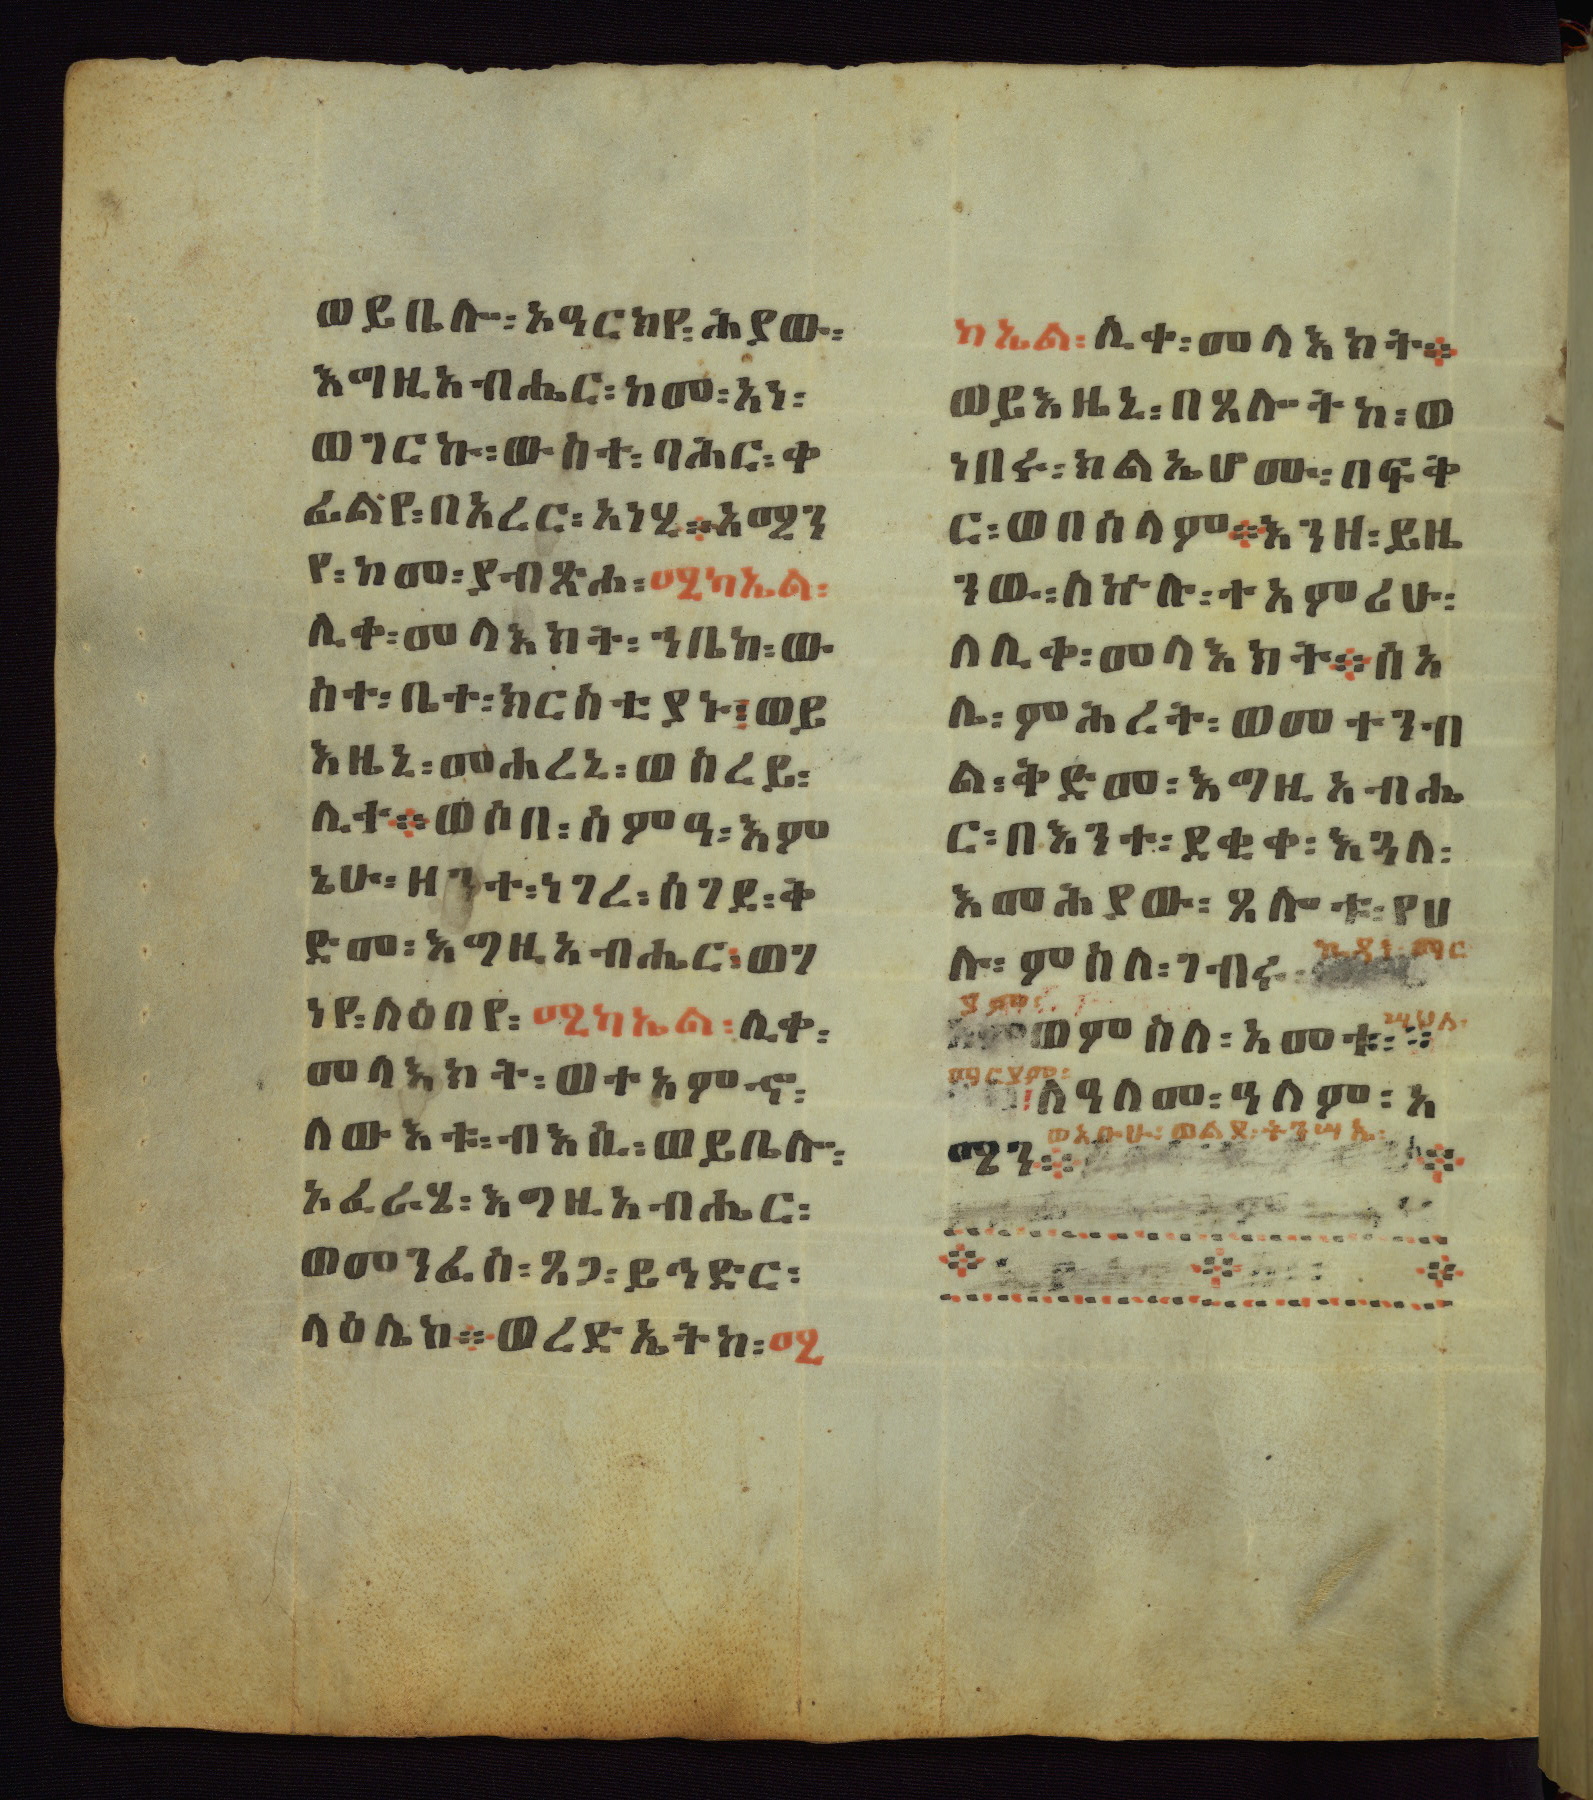 ወይቤሎ፡አዓርክየ፡ሕያው፡
እግዚአብሔር፡ከመ፡አነ፡
ወገርኩ፡ውስተ፡ባሕር፡ቀ
ፊልየ፡በእረር፡አነሂ፨አሚን
የ፡ከመ፡ያብጽሐ፡ሚካኤል፡
ሊቀ፡መላእክት፡ኀቤከ፡ው
ስተ፡ቤተ፡ክርስቲያኑ፤ወይ
እዜኒ፡መሐረኒ፡ወስረይ፡
ሊተ፨ወሶበ፡ሰምዓ፡እም
ኔሁ፡ዘንተ፡ነገረ፡ሰገደ፡ቅ
ድመ፡እግዚአብሔር፡ወገ
ነየ፡ለዕበየ፡ሚካኤል፡ሊቀ፡
መላእክት፡ወተአምኖ፡
ለውእቱ፡ብእሲ፡ወይቤሎ፡
አፈራሂ፡እግዚአብሔር፡
ወመንፈስ፡ጸጋ፡ይኀድር፡
ላዕሌከ፨ወረድኤትከ፡ሚ
ካኤል፡ሊቀ፡መላእክት፨
ወይእዜኒ፡በጸሎትከ፡ወ
ነበሩ፡ክልኤሆሙ፡በፍቅ
ር፡ወበሰላም፨እንዘ፡ይዜ
ንው፡ስኵሉ፡ተአምሪሁ፡
ለሊቀ፡መላእክት፨ሰአ
ሌ፡ምሕረት፡ወመተንብ
ል፡ቅድመ፡እግዚአብሔ
ር፡በእንተ፡ደቂቀ፡እጓለ፡
እመሕያው፡ጸሎቱ፡የሀ
ሉ፡ምስለ፡ገብሩ፡
ወምስለ፡አመቱ፡
ማርያም፡
ለዓለመ፡ዓለም፡አ
ወአቡሁ፡ወልደ፡ትንሣኤ፡
ሚን፨